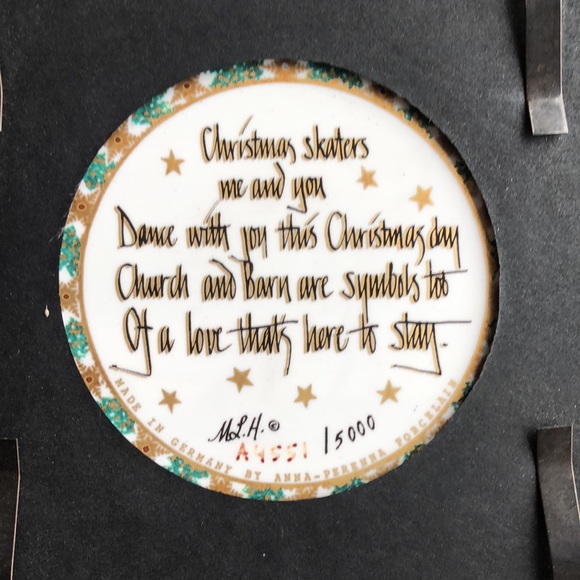 Christmas skaters
me and you
Dance with you this Christmas day
Church and Barn are symbols too
Of a love that's here to stay.
M.L.H. ©
A4551 / 5000
MADE IN GERMANY BY ANNA-PERENNA PORCELAIN